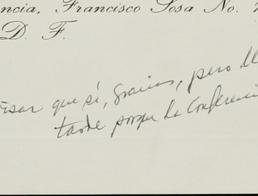 ncia, Francisco Sosa No.
D. F.
que sí, gracias, pero
tarde porque la Conferenci